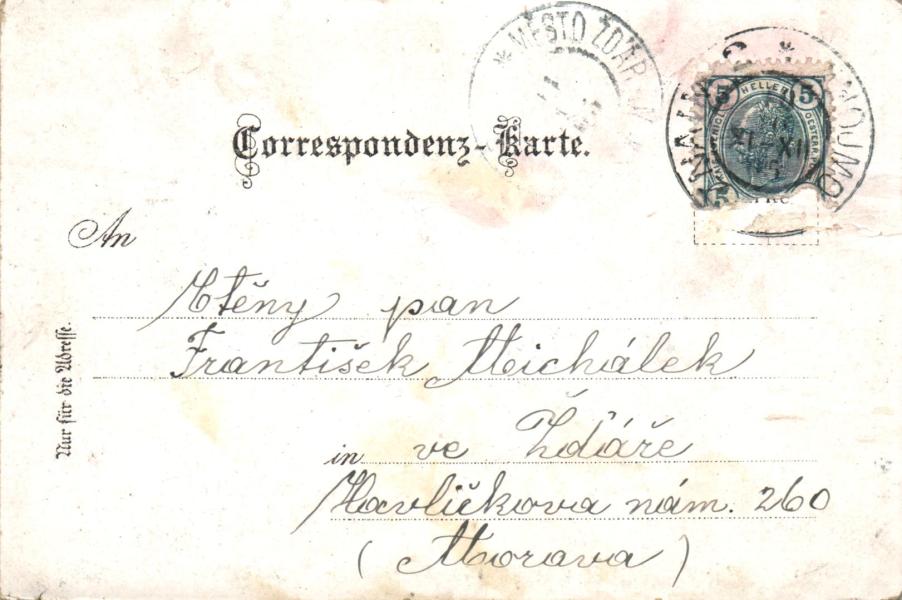 MĚSTO ŽĎÁR
5 HELLER 5
Correspondenz-Karte.
An
Ctěny pan
František Michálek
in ve Žďáře
Havlíčkova nám. 260
(Morava)
Nur für die Adresse.